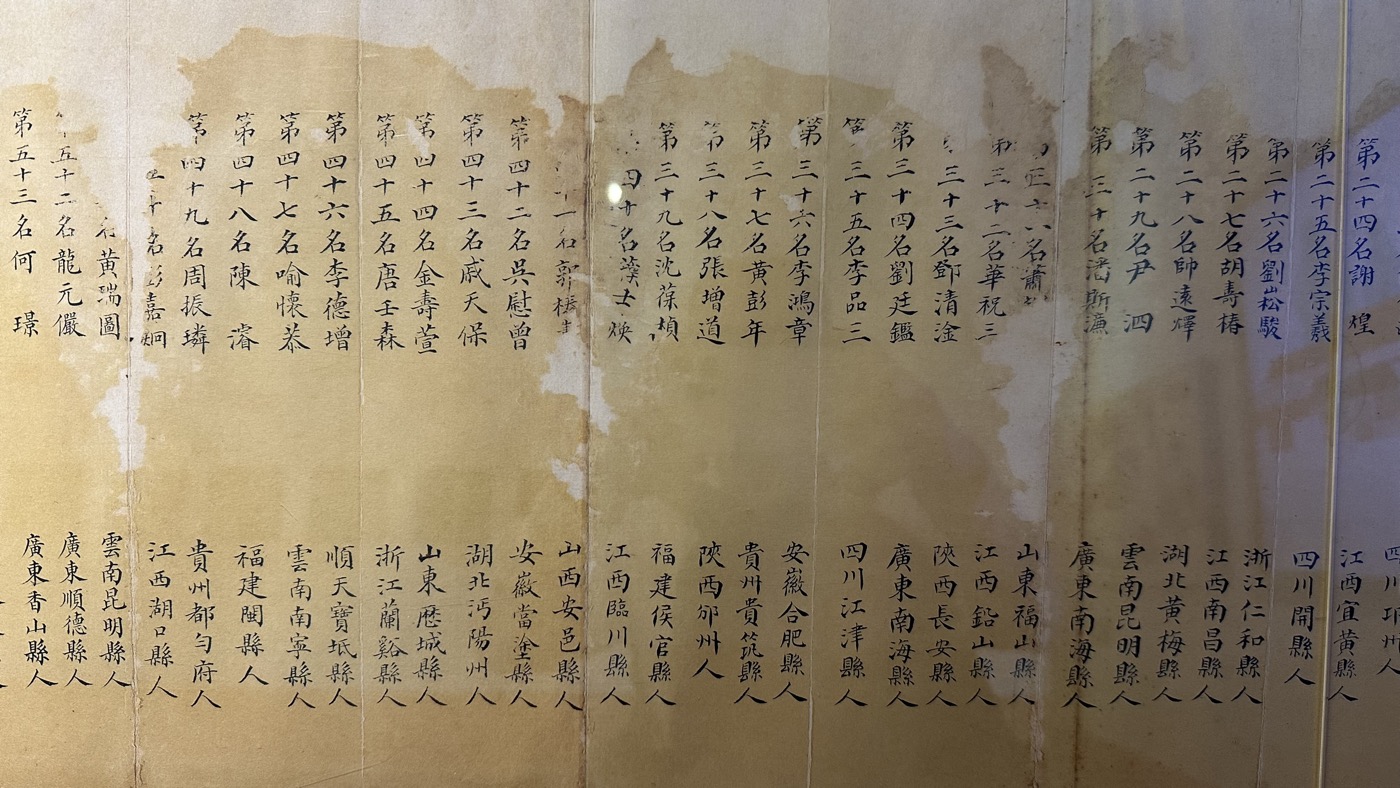 四川邛州
第二十四名謝 煌 江西宜黃縣人
第二十五名李宗羲 四川開縣人
第二十六名劉崧駿 浙江仁和縣人
第二十七名胡壽椿 江西南昌縣人
第二十八名帥遠燡 湖北黃梅縣人
第二十九名尹 泗 雲南昆明縣人
第三十名潘斯濂 廣東南海縣人
名蕭 山東福山縣人
第三十二名華祝三 江西鉛山縣人
三十三名鄧清淦 陝西長安縣人
第三十四名劉廷鑑 廣東南海縣人
第三十五名李品三 四川江津縣人
第三十六名李鴻章 安徽合肥縣人
第三十七名黃彭年 貴州貴筑縣人
第三十八名張增道 陝西邠州人
第三十九名沈葆楨 福建侯官縣人
四十名 士煥 江西臨川縣人
一名郭 山西安邑縣人
第四十二名吳慰曾 安徽當塗縣人
第四十三名戚天保 湖北沔陽州人
第四十四名金壽萱 山東歷城縣人
第四十五名唐壬森 浙江蘭谿縣人
第四十六名李德增 順天寶坻縣人
第四十七名喻懷恭 雲南南寧縣人
第四十八名陳 濬 福建閩縣人
第四十九名周振璘 貴州都勻府人
十名彭嘉炯 江西湖口縣人
名黃瑞圖 雲南昆明縣人
五十二名龍元儼 廣東順德縣人
第五十三名何 璟 廣東香山縣人